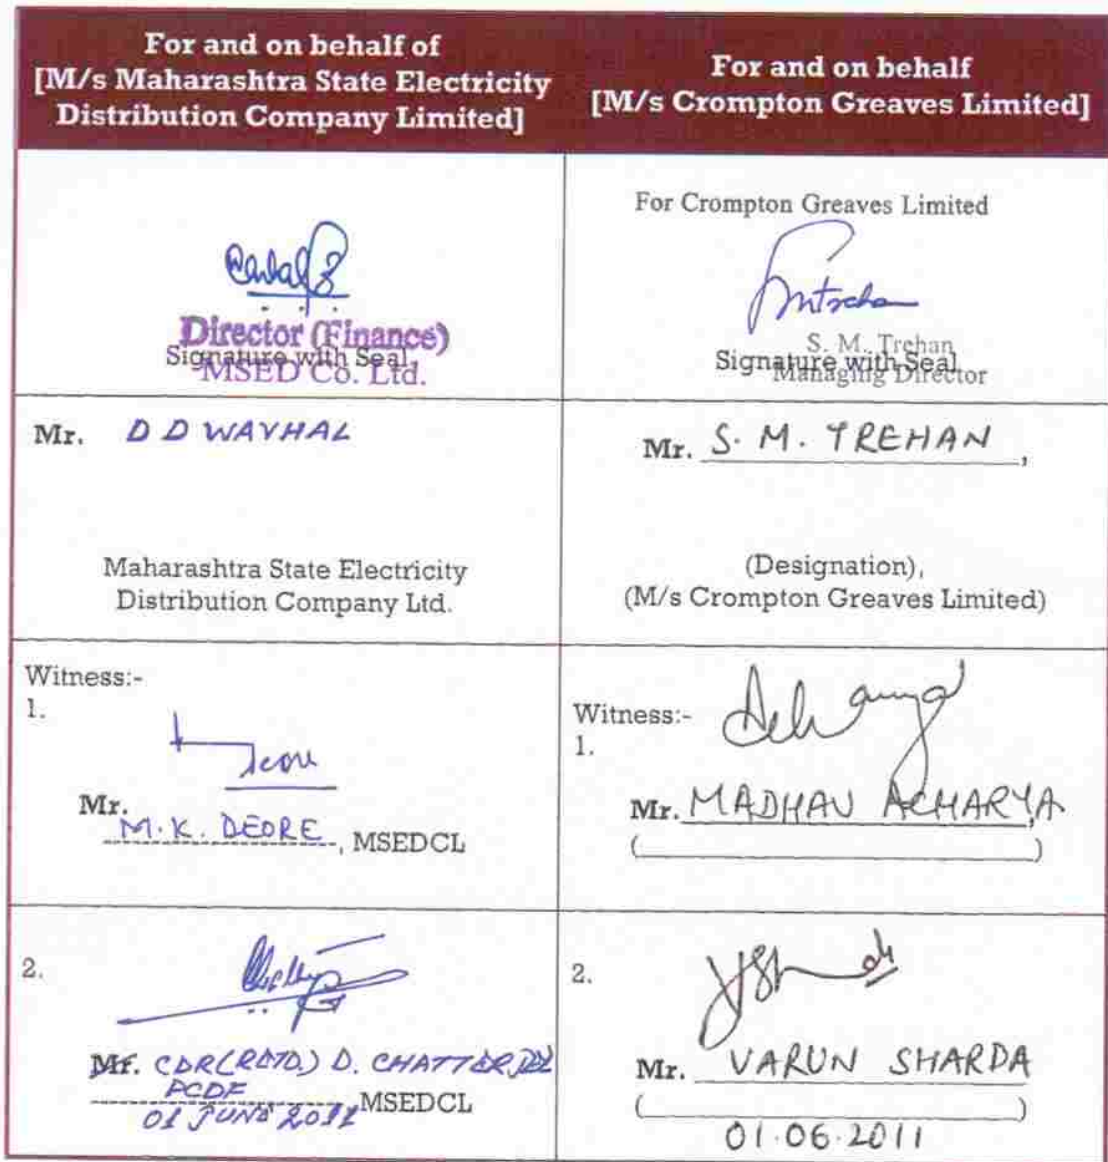 For and on behalf of
[M/s Maharashtra State Electricity
Distribution Company Limited]
For and on behalf
[M/s Crompton Greaves Limited]
Director (Finance)
Signature with Seal
MSED Co. Ltd.
For Crompton Greaves Limited
S. M. Trehan
Signature with Seal
Managing Director
Mr. D D WAVHAL
Maharashtra State Electricity
Distribution Company Ltd.
Mr. S. M. TREHAN,
(Designation),
(M/s Crompton Greaves Limited)
Witness:-
1.
Mr.
M.K. DEORE, MSEDCL
Witness:-
1.
Mr. MADHAV ACHARYA
( )
2.
Mr. CDR(RETD.) D. CHATTERJEE
PCDF
01 JUNE 2011 MSEDCL
2.
Mr. VARUN SHARDA
( )
01.06.2011